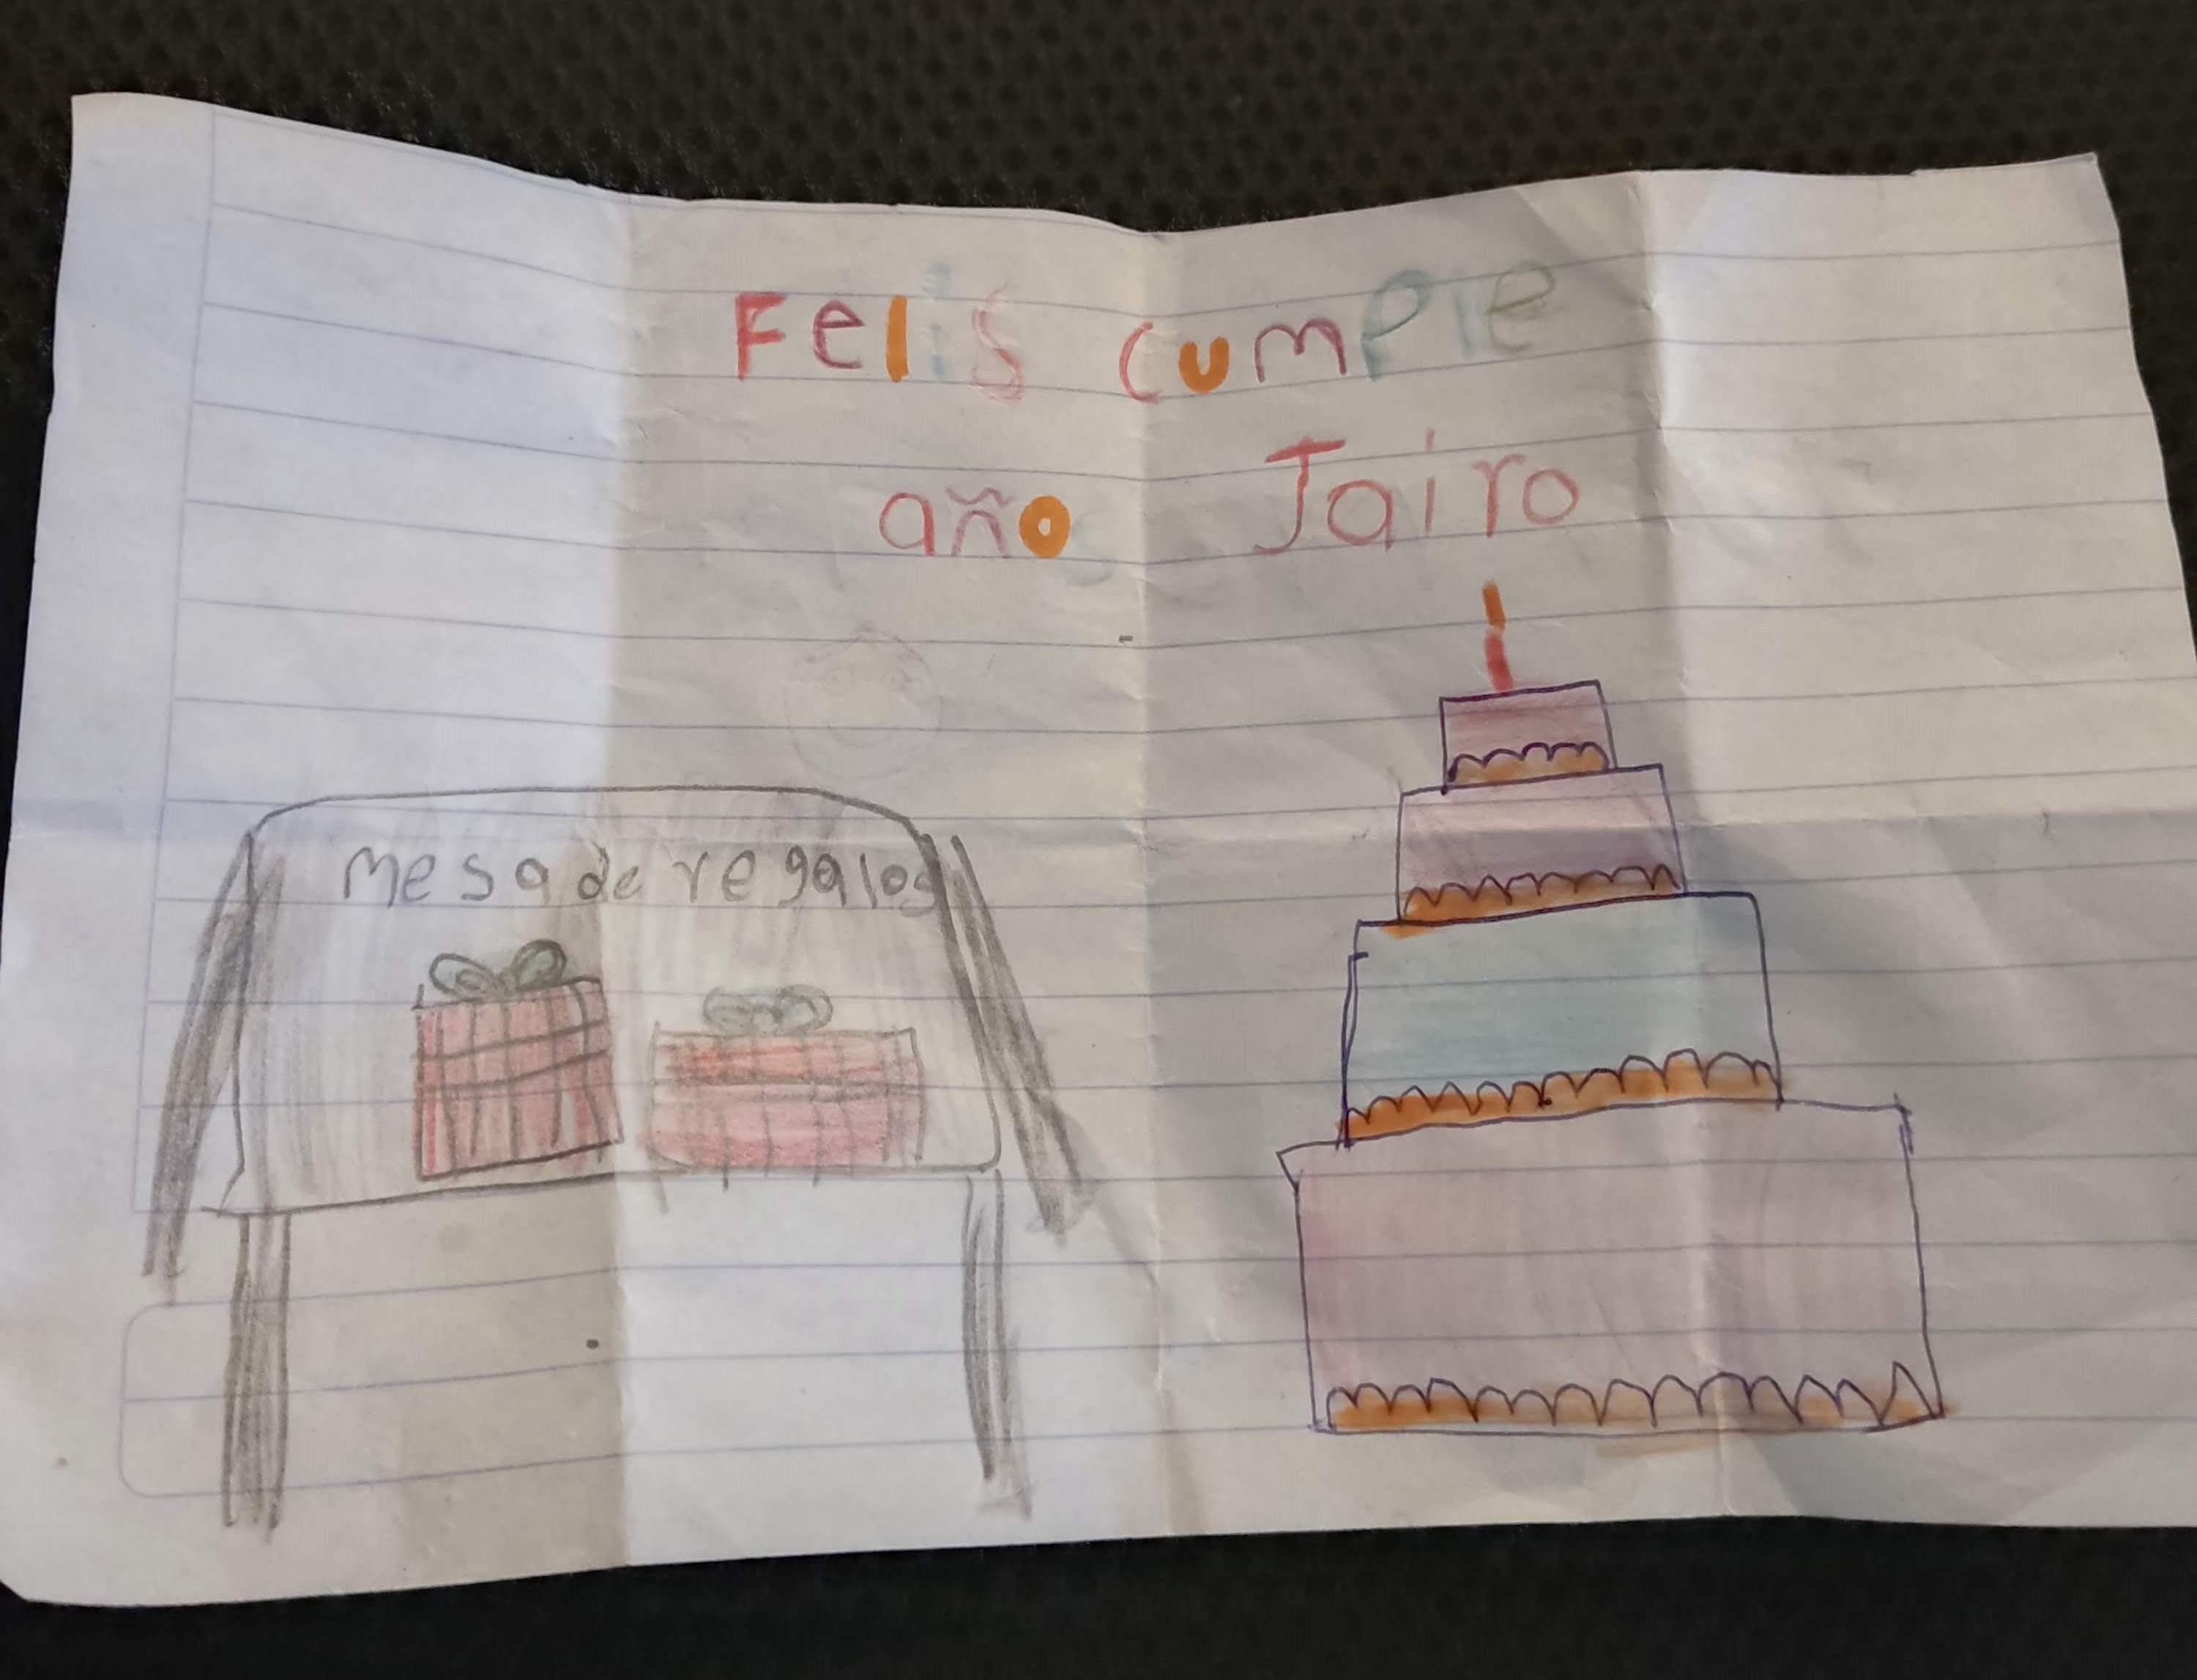 Felis cumple
años Jairo
mesa de regalos